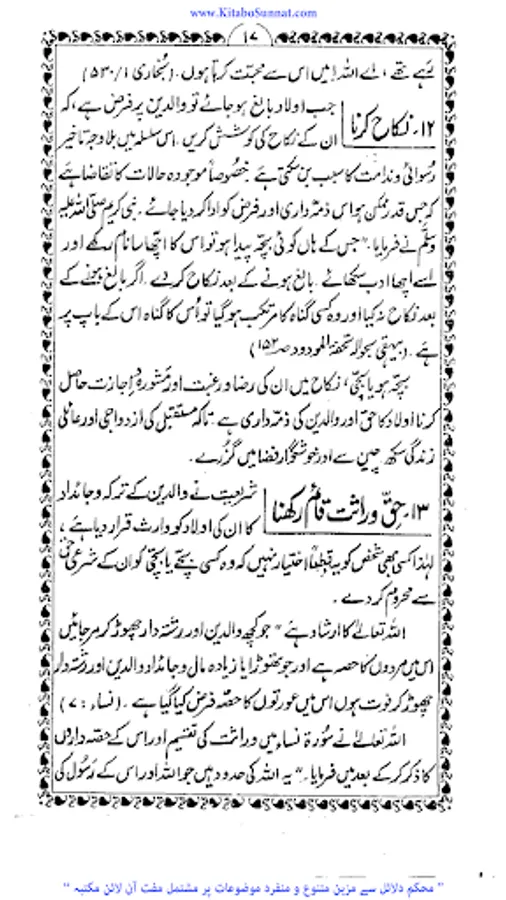 www.KitaboSunnat.com
۱۷
رہے تھے، اے اللہ! میں اس سے محبت کرتا ہوں۔ (بخاری ۱/۵۳۰)
۱۲۔ نکاح کرنا
جب اولاد بالغ ہو جائے تو والدین پر فرض ہے، کہ
ان کے نکاح کی کوشش کریں۔ اس سلسلہ میں بلاوجہ تاخیر
رسوائی و ندامت کا سبب بن سکتی ہے۔ خصوصاً موجودہ حالات کا تقاضا ہے
کہ جس قدر ممکن ہو اس ذمہ داری اور فرض کو ادا کر دیا جائے۔ نبی کریم صلی اللہ علیہ
وسلم نے فرمایا۔ "جس کے ہاں کوئی بچہ پیدا ہو تو اس کا اچھا سا نام رکھے اور
اسے اچھا ادب سکھائے۔ بالغ ہونے کے بعد نکاح کر دے۔ اگر بالغ ہونے کے
بعد نکاح نہ کیا اور وہ کسی گناہ کا مرتکب ہو گیا تو اُس کا گناہ اس کے باپ پر
ہے۔ (بیہقی بحوالہ تحفۃ المودود صـ ۱۵۲)
بچہ ہو یا بچی، نکاح میں ان کی رضا و رغبت اور مشورہ و اجازت حاصل
کرنا اولاد کا حق اور والدین کی ذمہ داری ہے۔ تاکہ مستقبل کی ازدواجی اور عائلی
زندگی سکھ چین سے اور خوشگوار فضا میں گزرے۔
۱۳۔ حق وراثت قائم رکھنا
شریعت نے والدین کے ترکہ و جائداد
کا ان کی اولاد کو وارث قرار دیا ہے،
لہٰذا کسی بھی شخص کو یہ قطعاً اختیار نہیں کہ وہ کسی بچے یا بچی کو ان کے شرعی حق
سے محروم کر دے۔
اللہ تعالیٰ کا ارشاد ہے "جو کچھ والدین اور رشتہ دار چھوڑ کر مر جائیں
اس میں مردوں کا حصہ ہے اور جو تھوڑا یا زیادہ مال و جائداد والدین اور رشتہ دار
چھوڑ کر فوت ہوں اس میں عورتوں کا حصہ فرض کیا گیا ہے۔ (نساء : ۷)
اللہ تعالیٰ نے سورۃ نساء میں وراثت کی تقسیم اور اس کے حصہ داروں
کا ذکر کرکے بعد میں فرمایا۔ "یہ اللہ کی حدود ہیں جو اللہ اور اس کے رسول کی
"محکم دلائل سے مزین متنوع و منفرد موضوعات پر مشتمل مفت آن لائن مکتبہ"